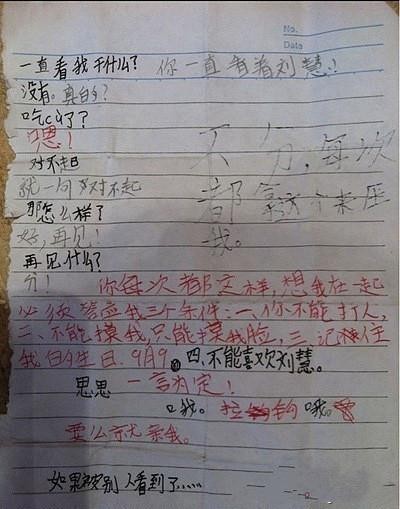 No.
Date
一直看我干什么？ 你一直看着刘慧！
没有。真的？
吃cù了？
嗯！
对不起
就一句对不起
那怎么样？
好，再见！
再见什么？
分！
不分，每次
都拿这个来
我。
你每次都这样，想我在一起
必须答应我三个条件：一、你不能打人，
二、不能摸我，只能摸我脸，三、记住
我的生日．9月9 四、不能喜欢刘慧。
思思 一言为定！
口我。拉钩 哦。
要么就亲我。
如果被别人看到了.....